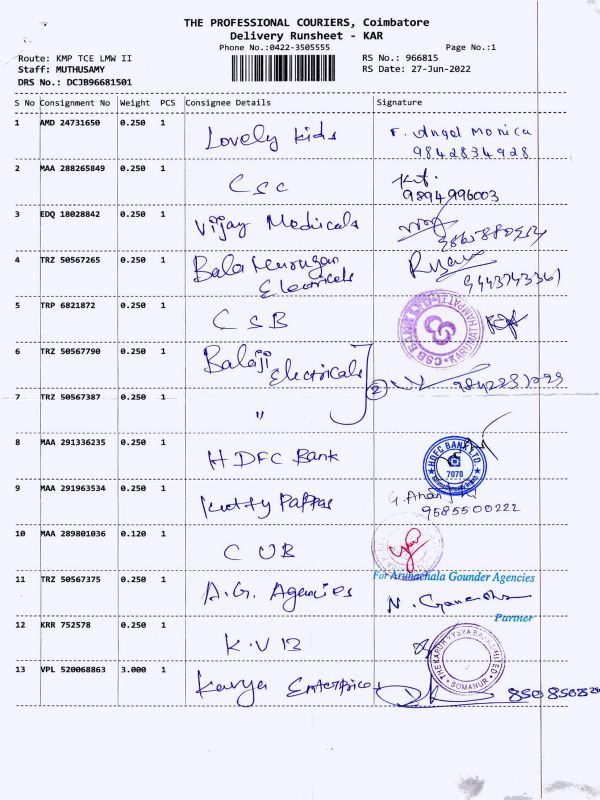 THE PROFESSIONAL COURIERS, Coimbatore
Delivery Runsheet - KAR
Phone No.:0422-3505555
Page No.:1
Route: KMP TCE LMW II
RS No.: 966815
Staff: MUTHUSAMY
RS Date: 27-Jun-2022
DRS No.: DCJB96681501
S No Consignment No Weight PCS Consignee Details Signature
1 AMD 24731650 0.250 1 Lovely kids F. Angel Monica
9842834928
2 MAA 288265849 0.250 1 CSC
9894996003
3 EDQ 18028842 0.250 1 Vijay Medicals
4 TRZ 50567265 0.250 1 Bala Murugan
Electricals 9443743361
5 TRP 6821872 0.250 1 CSB
CSB BANK LTD KARUMATHAMPATTI
6 TRZ 50567790 0.250 1 Balaji
Electricals 2
7 TRZ 50567387 0.250 1 "
8 MAA 291336235 0.250 1 HDFC Bank
HDFC BANK LTD
7078
9 MAA 291963534 0.250 1 Kutty Pappas G.
9585500222
10 MAA 289801036 0.120 1 CUB
11 TRZ 50567375 0.250 1 A.G. Agencies
For Arunachala Gounder Agencies
N.
Partner
12 KRR 752578 0.250 1 K.V.B
THE KARUR VYSYA BANK LIMITED
SOMANUR
13 VPL 520068863 3.000 1 Kavya